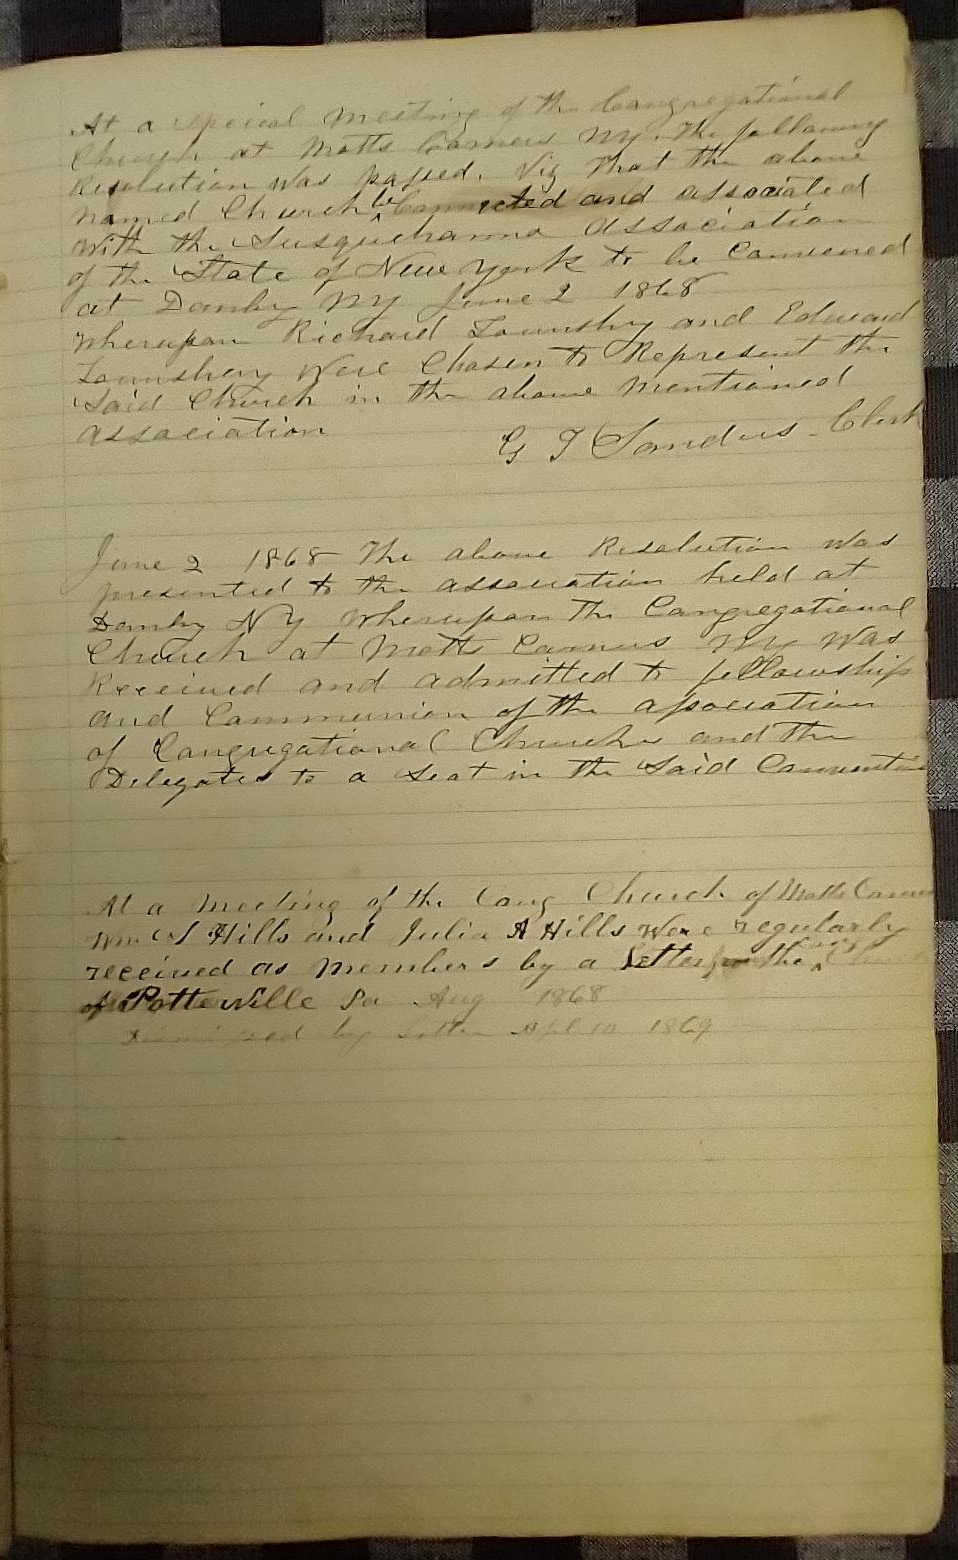 At a Speical Meeting of the Congregational
Church at Motts Corners NY. the following
Resolution was passed. Viz That the above
named Church be Connected and associated
With the Susquehanna Association
of the State of New York to be Convened
at Danby NY June 2 1868
Wherupon Richard Lounsbry and Edward
Lounsbery Were Chosen to Represent the
Said Church in the above mentioned
association
G T Sanders - Clerk
June 2 1868 The above Resolution was
presented to the association held at
Danby NY Wherupon the Congregational
Church at Motts Corners NY Was
Received and admitted to fellowship
and Communion of the association
of Congregational Churche and the
Delegates to a Seat in the Said Convention
At a Meeting of the Cong Church of Motts Corners
Wm S Hills and Julia A Hills Were regularly
received as Members by a Letter from the
of Potterville Pa Aug 1868
Dismissed by Letter Apl 10 1869